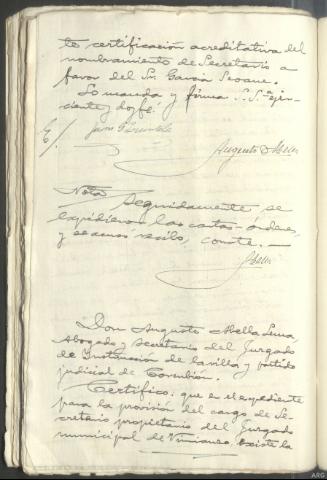 te certificación acreditativa del
nombramiento de Secretario a
favor del Sr. García Seoane.
Lo manda y firma S.S.ª ejer-
ciente y doy fé.
E/.
Augusto Abella
Nota
Seguidamente se
expidieron las cartas-órdenes,
y se acusó recibo, conste.—
Abella
Don Augusto Abella Lema,
Abogado y Secretario del Juzgado
de Instrucción de la villa y partido
judicial de Corcubión.
Certifico: que en el expediente
para la provisión del cargo de Se-
cretario propietario del Juzgado
municipal de Vimianzo, existe la
ARG